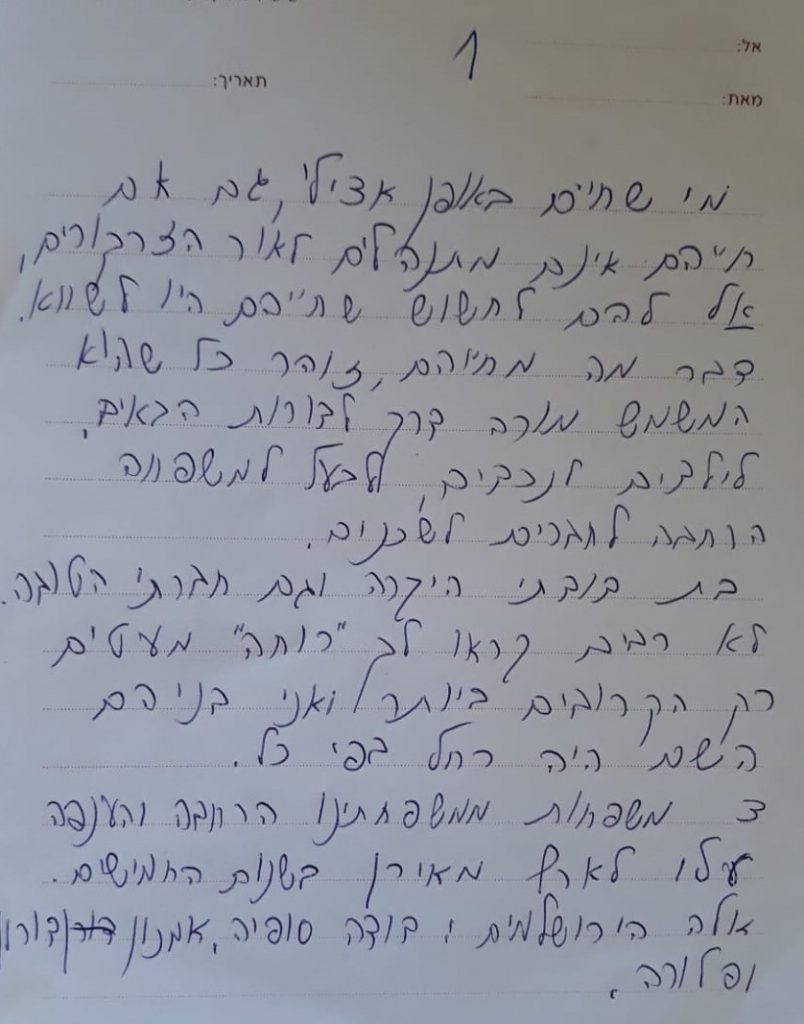 אל:
1
תאריך:
מאת:
מי שחיים באופן אצילי, גם אם
חייהם אינם מתנהלים לאור הזרקורים,
אל להם לחשוש שחייהם היו לשווא.
דבר מה מחייהם, זוהר כל שהוא
המשמש מורה דרך לדורות הבאים.
לילדים לנכדים, ולבעל למשפחה
הרחבה לחברים לשכנים.
בת דודתי היקרה וגם חברתי הטובה.
לא רבים קראו לך "רוחה" מעטים
רק הקרובים ביותר ואני בניהם
השם היה רחל בפי כל.
3 משפחות ממשפחתינו הרחבה והענפה
עלו לארץ מאירן בשנות החמישים.
אלה הירושלמים: דודה סופיה, אמנון דורון
ופלורה.